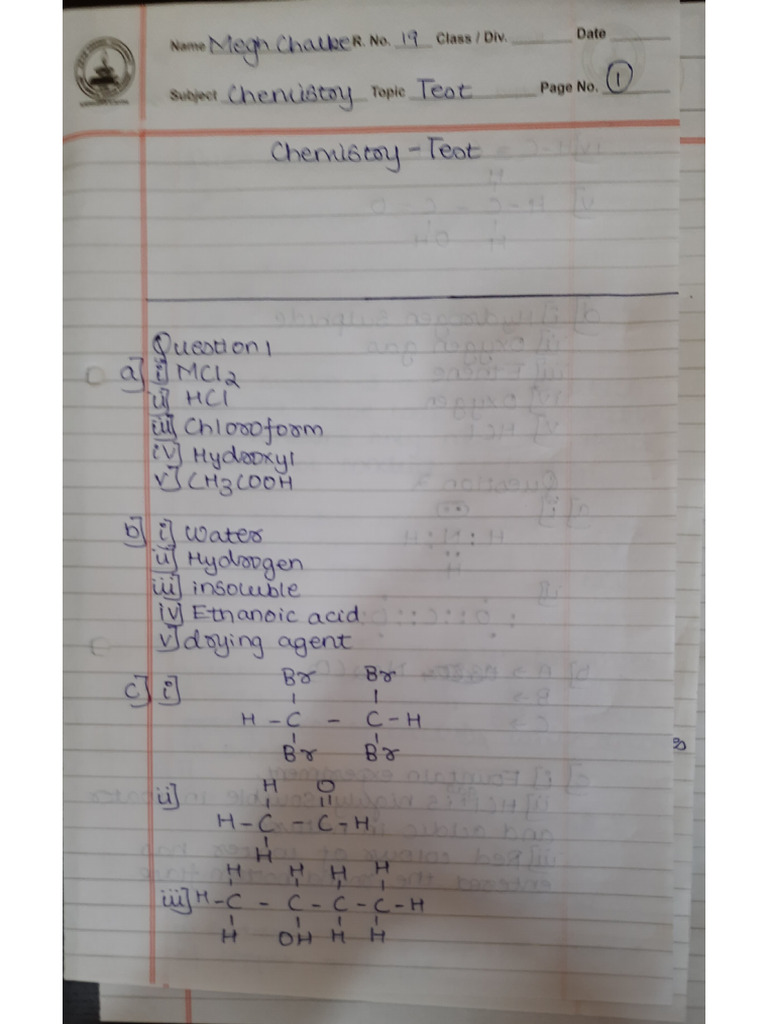 Name Megh Chalke R. No. 19 Class / Div. Date
Subject Chemistry Topic Test Page No. 1
Chemistry - Test
Question 1
a] i] MCl2
ii] HCl
iii] Chloroform
iv] Hydroxyl
v] CH3COOH
b] i] Water
ii] Hydrogen
iii] insoluble
iv] Ethanoic acid
v] drying agent
c] i]
Br Br
H - C - C - H
Br Br
ii]
H O
H - C - C - H
H
iii]
H H H H
H - C - C - C - C - H
H OH H H